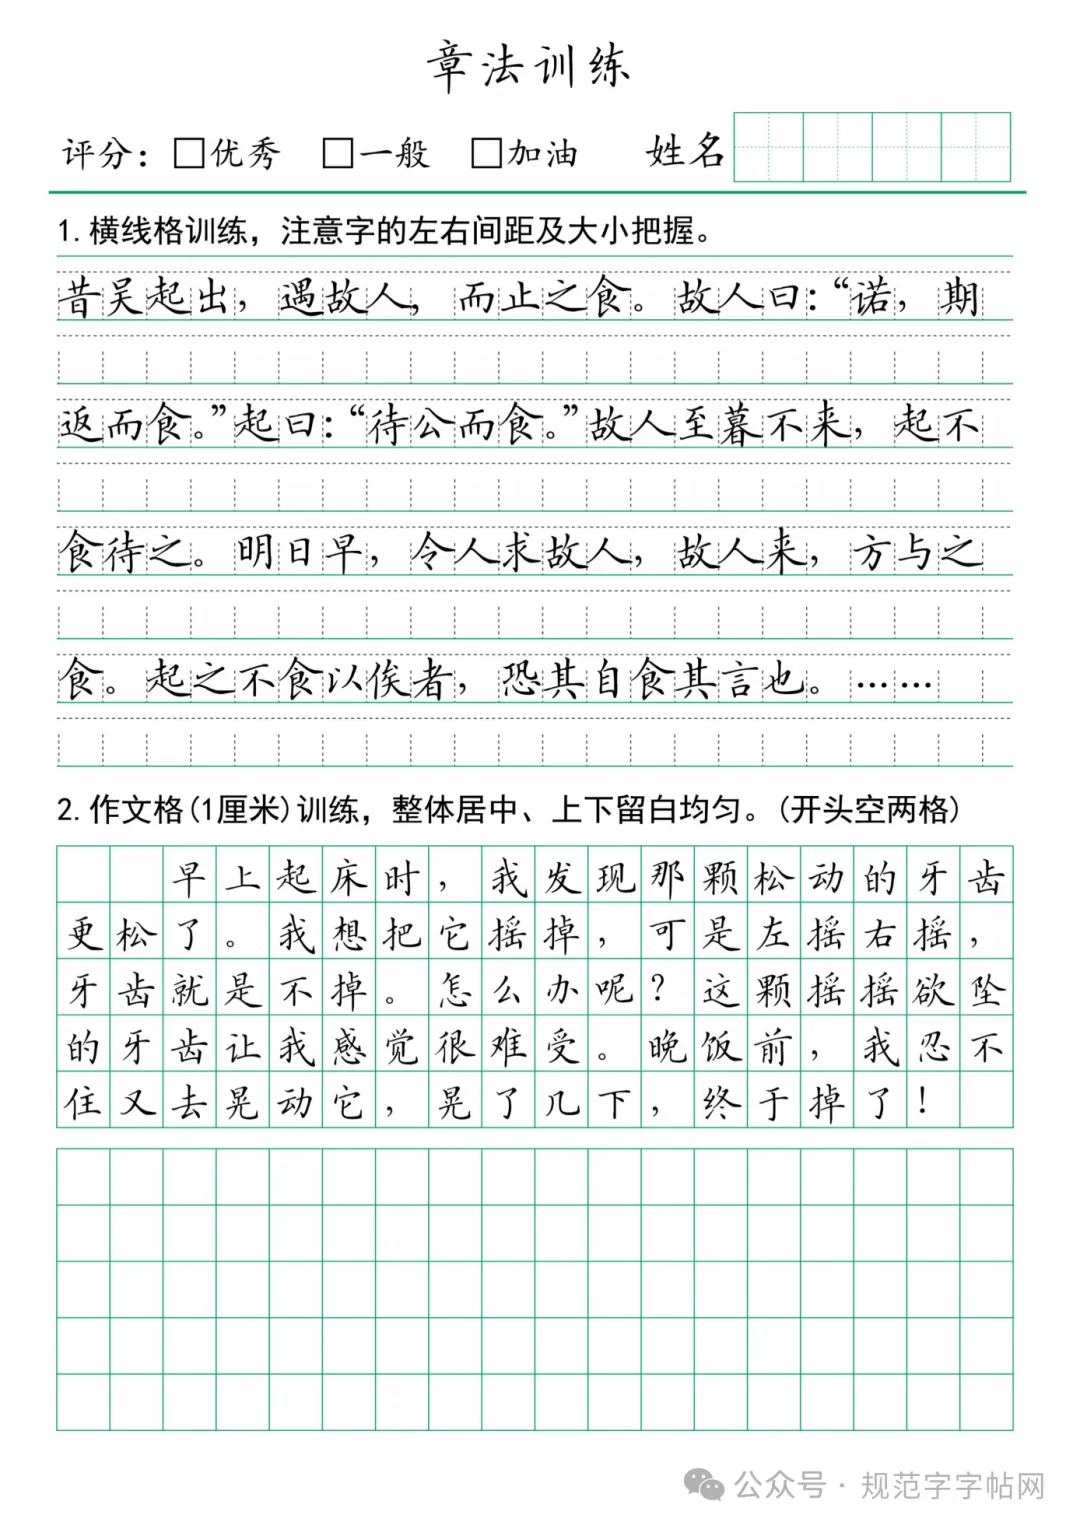 章法训练
评分：□优秀 □一般 □加油 姓名
1.横线格训练，注意字的左右间距及大小把握。
昔吴起出，遇故人，而止之食。故人曰：“诺，期
返而食。”起曰：“待公而食。”故人至暮不来，起不
食待之。明日早，令人求故人，故人来，方与之
食。起之不食以俟者，恐其自食其言也。……
2.作文格(1厘米)训练，整体居中、上下留白均匀。(开头空两格)
早上起床时，我发现那颗松动的牙齿
更松了。我想把它摇掉，可是左摇右摇，
牙齿就是不掉。怎么办呢？这颗摇摇欲坠
的牙齿让我感觉很难受。晚饭前，我忍不
住又去晃动它，晃了几下，终于掉了！
公众号·规范字字帖网